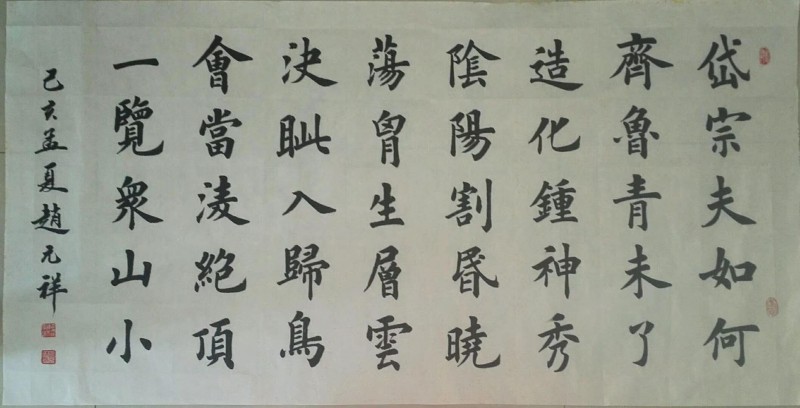 岱宗夫如何
齊魯青未了
造化鍾神秀
陰陽割昏曉
蕩胷生層雲
決眦入歸鳥
會當淩絕頂
一覽眾山小
己亥孟夏趙元祥